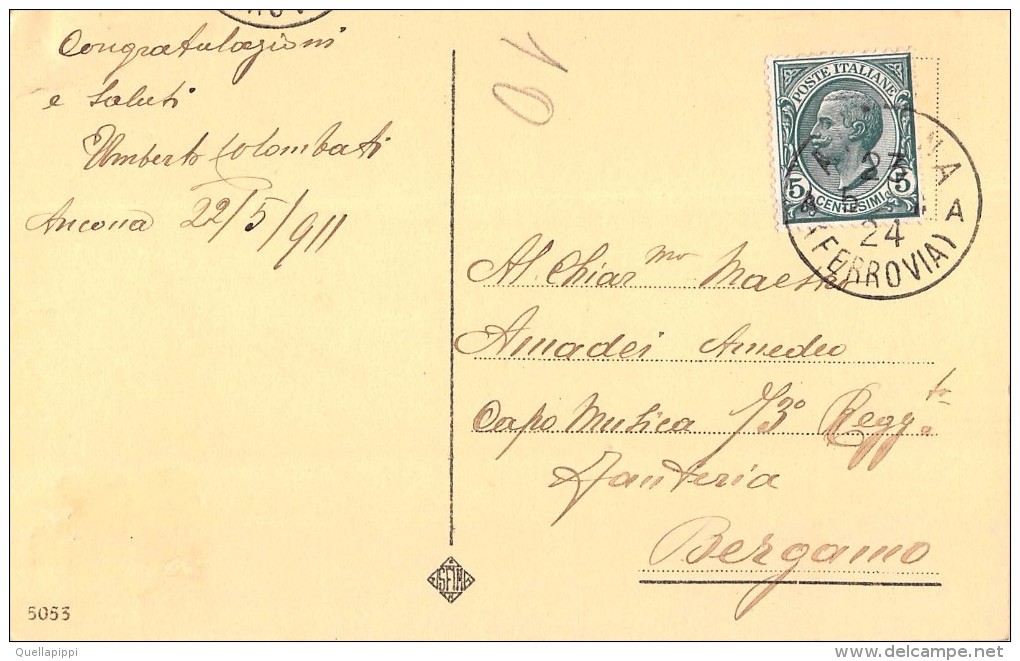 Congratulazioni
e saluti
Umberto Colombati
Ancona 22/5/911
POSTE ITALIANE
5 CENTESIMI 5
23
5
24
(FERROVIA)
A
Al Chiar mo Maestro
Amadei Amedeo
Capo Musica 73º Regg.to
Fanteria
Bergamo
5053
Quellapippi
delcampe.net